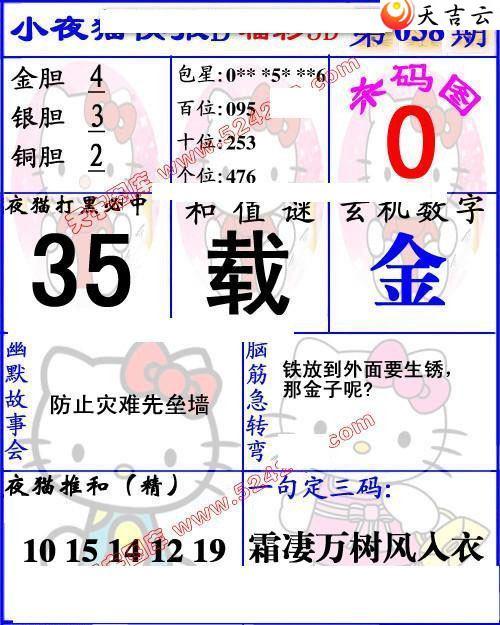 天吉云
小夜猫快报D 福彩3D 第038期
金胆 4
银胆 3
铜胆 2
包星:0** *5* **6
百位:095
十位:253
个位:476
杀码图
0
夜猫打黑必中
35
和值谜
载
玄机数字
金
幽默故事会
防止灾难先垒墙
脑筋急转弯
铁放到外面要生锈,
那金子呢?
夜猫推和（精）
10 15 14 12 19
一句定三码:
霜凄万树风入衣